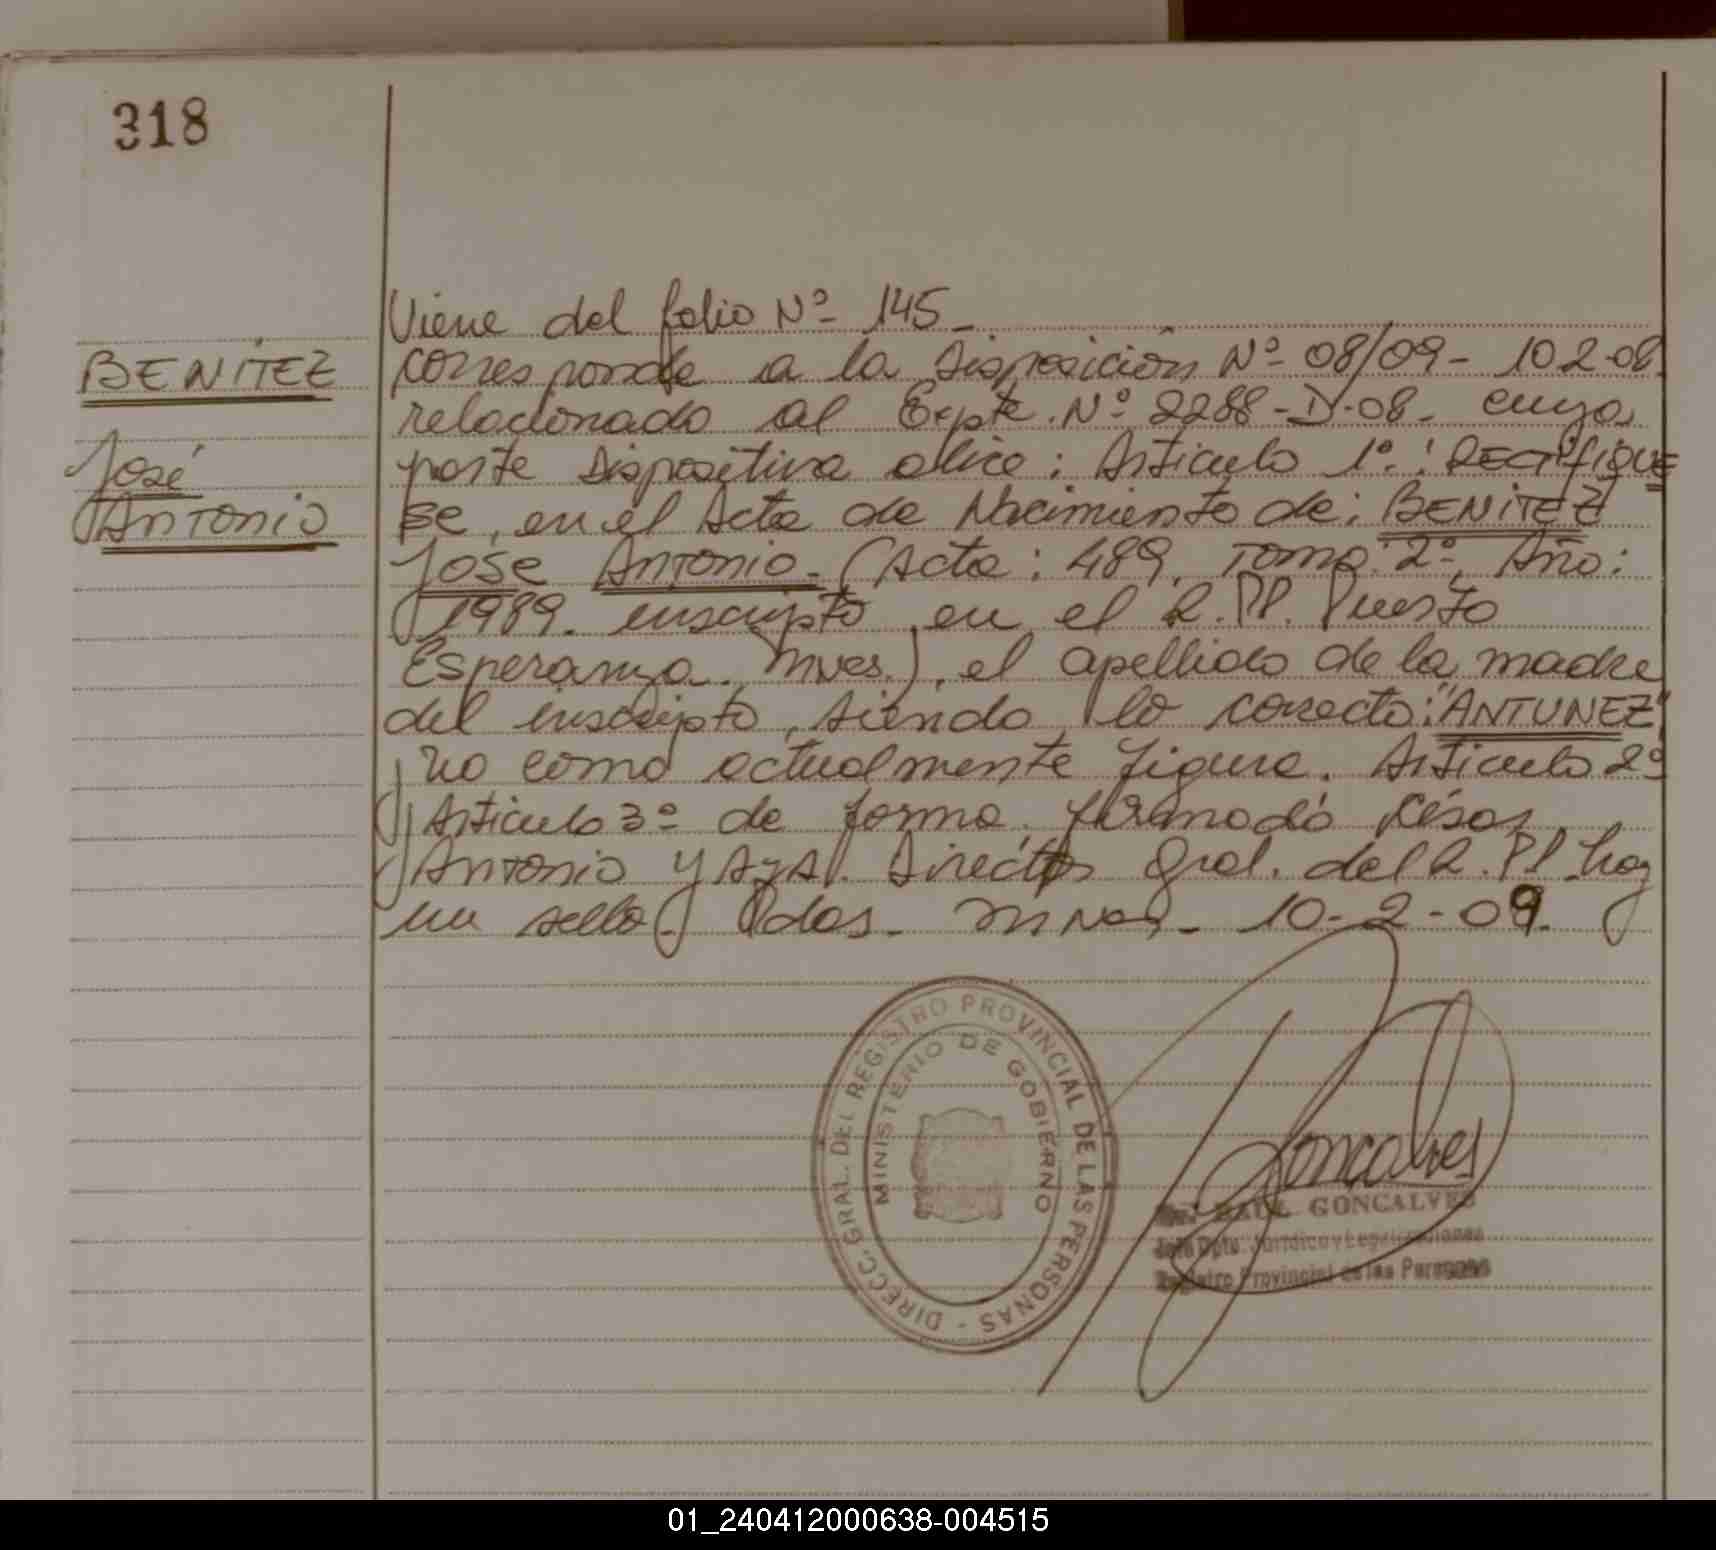 318
Viene del folio Nº 145_
BENÍTEZ
José
Antonio
corresponde a la Disposición Nº 08/09 - 10 2-08.
relacionado al Expte. Nº 2288-D-08. cuya
parte Dispositiva dice: Artículo 1º: RECTIFIQUE
se, en el Acta de Nacimiento de: BENÍTEZ
José Antonio. (Acta: 489, Tomo: 2º, Año:
1989. inscripto en el R.PP. Puesto
Esperanza. Mnes.), el apellido de la madre
del inscripto, siendo lo correcto: "ANTUNEZ"
y no como actualmente figura. Artículo 2º
y Artículo 3º de forma. firmado
Antonio Director Gral. del R.PP. hay
un sello. Pdas. Mnes. 10-2-09.
DIRECC. GRAL. DEL REGISTRO PROVINCIAL DE LAS PERSONAS -
MINISTERIO DE GOBIERNO
Goncalves
RAUL GONCALVES
Jefe Dpto. Jurídico y Legalizaciones
Registro Provincial de las Personas
01_240412000638-004515